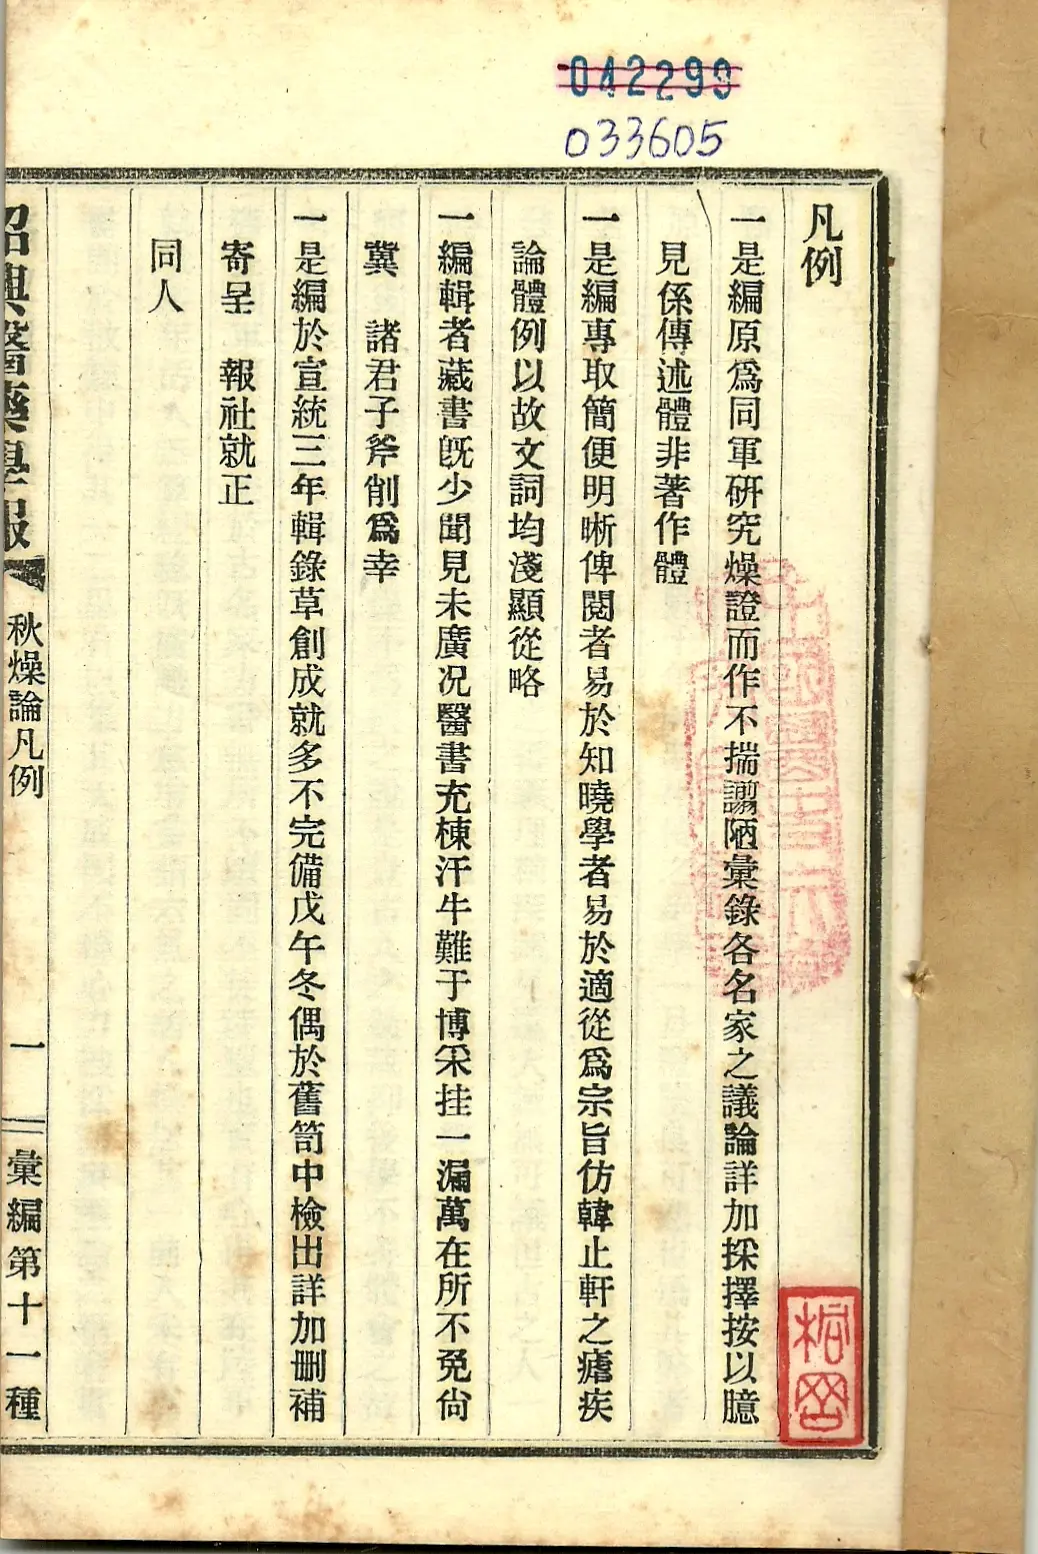 042299
033605
凡例
一是編原爲同軍硏究燥證而作不揣謭陋彙錄各名家之議論詳加採擇按以臆
見係傳述體非著作體
一是編專取簡便明晰俾閱者易於知曉學者易於適從爲宗旨仿韓止軒之瘧疾
論體例以故文詞均淺顯從略
一編輯者藏書旣少聞見未廣况醫書充棟汗牛難于博采挂一漏萬在所不免尙
冀 諸君子斧削爲幸
一是編於宣統三年輯錄草創成就多不完備戊午冬偶於舊笥中檢出詳加删補
寄呈 報社就正
同人
紹興醫藥學報
秋燥論凡例
一
彙編第十一種